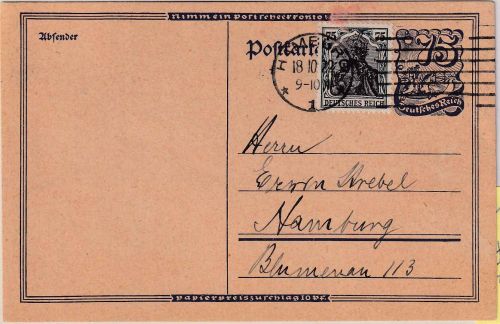 Nimm ein Postscheckkonto!
Absender
Postkarte
75
75
75
DEUTSCHES REICH
Deutsches Reich
18.10.22
9-10
1
Herrn
Erwin Strebel
Hamburg
Blumenau 113
Papierpreiszuschlag 10 Pf.